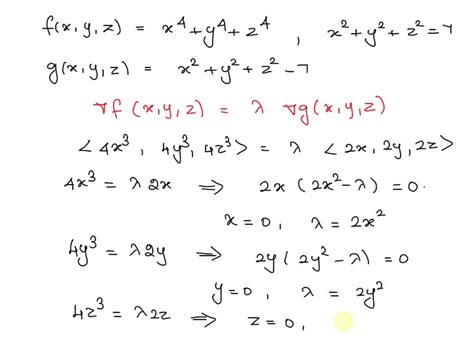 f(x,y,z) = x⁴+y⁴+z⁴ , x²+y²+z²=7
g(x,y,z) = x²+y²+z²-7
∇f (x,y,z) = λ ∇g(x,y,z)
<4x³, 4y³, 4z³> = λ <2x, 2y, 2z>
4x³ = λ2x ⇒ 2x (2x²-λ) = 0.
x=0, λ=2x²
4y³ = λ2y ⇒ 2y(2y²-λ)=0
y=0, λ = 2y²
4z³ = λ2z ⇒ z=0,